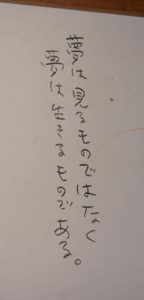 夢は見るものではなく
夢は生きるものである。